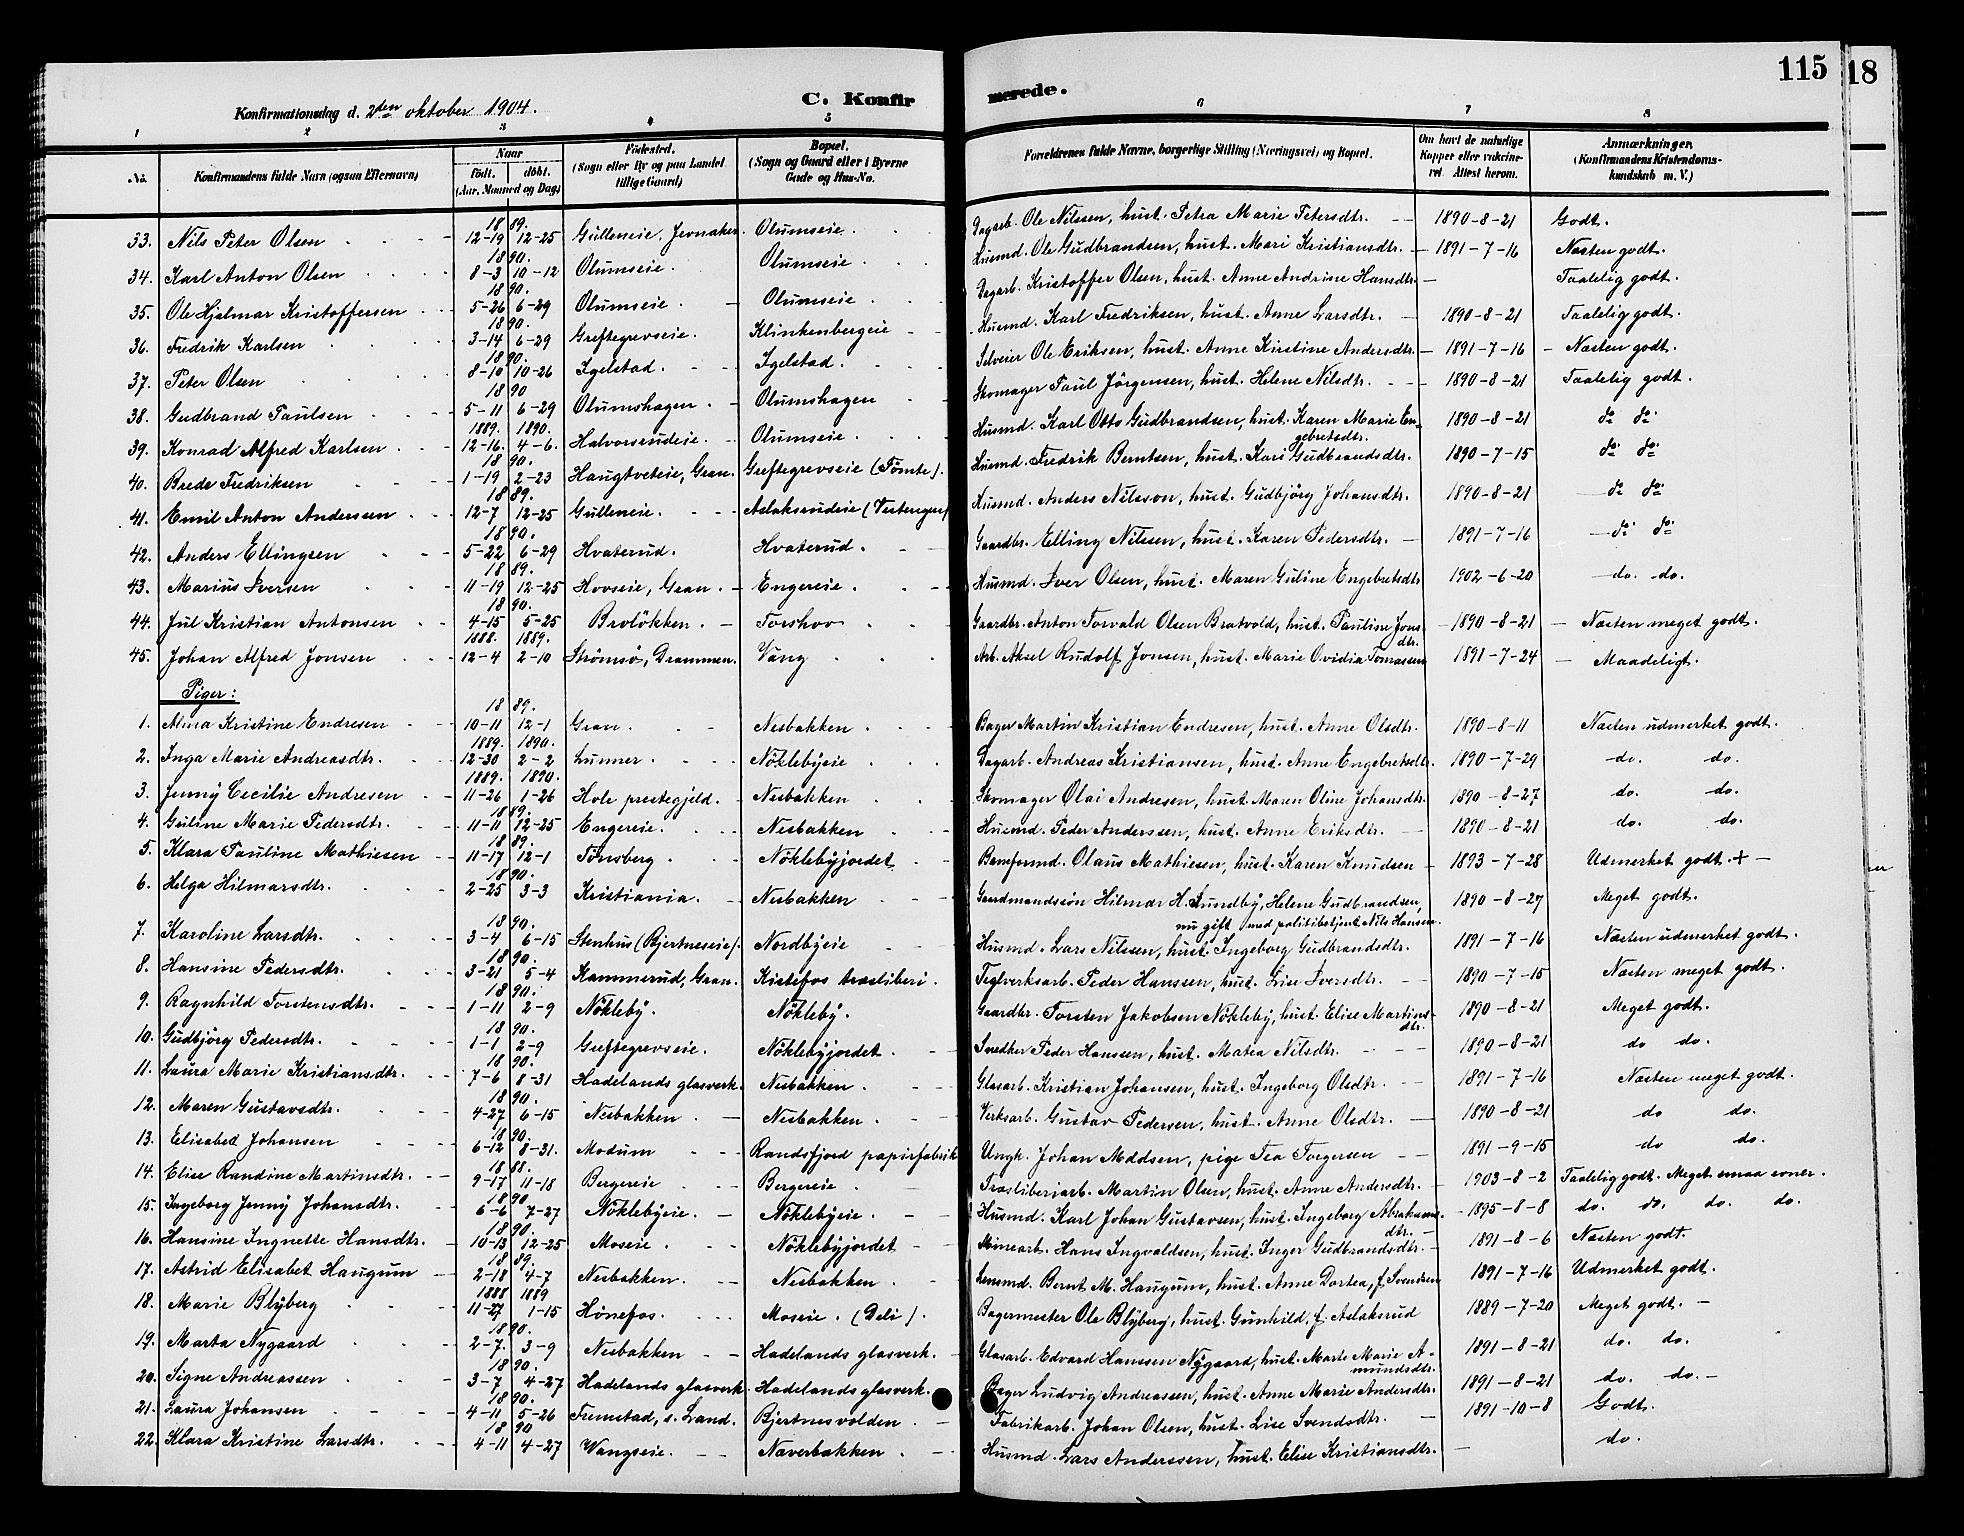 115
18
Konfirmationsdag d. 2den oktober 1904.
C. Konfirmerede.
1 2 3 4 5 6 7 8
No. Konfirmandens fulde Navn (ogsaa Efternavn) Naar født. døbt. (Aar, Maaned og Dag) Fødested. (Sogn eller By og paa Landet tillige Gaard) Bopæl. (Sogn og Gaard eller i Byerne Gade og Hus-No. Forældrenes fulde Navne, borgerlige Stilling (Næringsvei) og Bopæl. Om havt de naturlige Kopper eller vaccineret. Attest herom. Anmærkninger. (Konfirmandens Kristendomskundskab m. V.)
33. Nils Peter Olsen 1889. 12-19 12-25 Gulleneie, Jevnaker Olumseie. Dagarb. Ole Nilssen, hust. Petra Marie Petersdtr. 1890-8-21 Godt.
34. Karl Anton Olsen 1890. 8-3 10-12 Olumseie. Olumseie Husmd. Ole Gudbrandsen, hust. Mari Kristiansdtr. 1891-7-16 Næsten godt.
35. Ole Hjalmar Kristoffersen 1890. 5-26 6-29 Olumseie. Olumseie Dagarb. Kristoffer Olsen, hust. Anne Andrine Hansdtr. Taalelig godt.
36. Fredrik Karlsen 1890. 3-14 6-29 Greftegrevseie. Klinkenbergeie Husmd. Karl Fredriksen, hust. Anne Larsdtr. 1890-8-21 Taalelig godt.
37. Peter Olsen 1890. 8-10 10-26 Igelstad. Igelstad. Selveier Ole Eriksen, hust. Anne Kirstine Andersdtr. 1891-7-16 Næsten godt.
38. Gudbrand Paulsen 1890 5-11 6-29 Olumshagen. Olumshagen Skomager Paul Jörgensen, hust. Helene Nilsdtr. 1890-8-21 Taalelig godt.
39. Konrad Alfred Karlsen 1889. 1890. 12-16. 4-6. Halvorsrudeie. Olumseie Husmd. Karl Otto Gudbrandsen, hust. Karen Marie Engebretsdtr. 1890-8-21 do do
40. Brede Fredriksen 1890. 1-19 2-23 Haugtveteie, Gran. Greftegrevseie (Tømte). Husmd. Fredrik Berntsen, hust. Kari Gudbrandsdtr. 1890-7-15 do do
41. Emil Anton Anderssen 1889. 12-7 12-25 Gulleneie. Aslaksrudeie (Vestengen) Husmd. Anders Nilsson, hust. Gudbjörg Johansdtr. 1890-8-21 do do
42. Anders Ellingsen 1890. 5-22 6-29 Hvaterud. Hvaterud. Gaardbr. Elling Nilssen, hust. Karen Pedersdtr. 1891-7-16 do do
43. Marius Iversen 1889. 11-19 12-25 Hovseie, Gran. Engereie. Husmd. Iver Olsen, hust. Maren Guline Engebretsdtr 1902-6-20 do. do.
44. Jul Kristian Antonsen 1890. 4-15 5-25 Brolökken. Torshov Gaardbr. Anton Torvald Olsen Bratvold, hust. Pauline Jonsdtr. 1890-8-21 Næsten meget godt.
45. Johan Alfred Jonsen 1888. 1889. 12-4 2-10 Strømsø, Drammen. Vang Arb. Aksel Rudolf Jonsen, hust. Marie Ovidia Tomassen 1891-7-24 Maadeligt.
Piger:
1. Alma Kristine Endresen 1889. 10-11 12-1 Gran. Nesbakken Bager Martin Kristian Endresen, hust. Anne Olsdtr. 1890-8-11 Næsten udmerket godt.
2. Inga Marie Andreasdtr. 1889. 1890. 12-30 2-2 Lunner. Nöklebyeie Dagarb. Andreas Kristiansen, hust. Anne Engebretsdtr. 1890-7-29 do. do.
3. Jenny Cecilie Andresen 1889. 1890. 11-26 1-26 Hole prestegjeld. Nesbakken Skomager Olai Andresen, hust. Maren Oline Johansdtr. 1890-8-27 do. do.
4. Guline Marie Pedersdtr. 1889. 11-11 12-25 Engereie. Nesbakken Husmd. Peder Anderssen, hust. Anne Eriksdtr. 1890-8-21 do. do.
5. Klara Pauline Mathiesen 1889. 11-17 12-1 Tönsberg. Nöklebyjordet Baneformd. Olaus Mathiesen, hust. Karen Knudsen 1893-7-28 Udmerket godt. +
6. Helga Hilmarsdtr. 1890. 2-25 3-3 Kristiania. Nesbakken Gaardmandssön Hilmar H. Lundby, Helene Gudbrandsen, nu gift med politibetjent Nils Hansen. 1890-8-27 Meget godt.
7. Karoline Larsdtr. 1890. 3-4 6-15 Stenhus (Bjertneseie). Nordbyeie Husmd. Lars Nilssen, hust. Ingeborg Gudbrandsdtr. 1891-7-16 Næsten udmerket godt.
8. Hansine Pedersdtr. 1890. 3-21 5-4 Kammerud, Gran. Kistefos træsliberi. Teglverksarb. Peder Hanssen, hust. Lise Iversdtr. 1890-7-15 Næsten meget godt.
9. Ragnhild Torstensdtr. 1890. 1-11 2-9 Nökleby. Nökleby. Gaardbr. Torsten Jakobsen Nökleby, hust. Elise Martinsdtr. 1890-8-21 Meget godt.
10. Gudbjörg Pedersdtr. 1890. 1-1 2-9 Greftegrevseie. Nöklebyjordet Snedker Peder Hanssen, hust. Matea Nilsdtr. 1890-8-21 do do.
11. Laura Marie Kristiansdtr. 1890. 7-6 8-31 Hadelands glasverk. Nesbakken. Glasarb. Kristian Johansen, hust. Ingeborg Olsdtr. 1891-7-16 Næsten meget godt.
12. Maren Gustavsdtr. 1890. 4-27 6-15 Nesbakken Nesbakken. Verksarb. Gustav Pedersen, hust. Anne Olsdtr. 1890-8-21 do do.
13. Elisabet Johansen 1890. 6-12 8-31. Modum Randsfjord papirfabrik Ungk. Johan Mddsen, pige Tea Torgersen 1891-9-15 do do.
14. Elise Randine Martinsdtr. 1888. 9-17 11-18 Bergereie Bergereie. Træsliberiarb. Martin Olsen, hust. Anne Andersdtr. 1903-8-2 Taalelig godt. Meget smaa evner.
15. Ingeborg Jenny Johansdtr. 1890. 6-6 7-27 Nöklebyeie. Nöklebyeie. Husmd. Karl Johan Gustavsen, hust. Ingeborg Abrahamsdtr. 1895-8-8 do. do. do. do.
16. Hansine Ingnette Hansdtr. 1890. 10-13 12-25 Moseie. Nöklebyjordet Minearb. Hans Ingvaldsen, hust. Inger Gudbrandsdtr. 1891-8-6 Næsten godt.
17. Astrid Elisabet Haugum 1889. 2-18 4-7 Nesbakken. Nesbakken Lensmd. Bernt M. Haugum, hust. Anne Dortea, f. Svendsen 1891-7-16 Udmerket godt.
18. Marie Blyberg 1888 1889 11-27 1-15 Hønefos. Moseie. (Deli). Bagermester Ole Blyberg, hust. Gunhild, f. Aslaksrud 1889-7-20 Meget godt.
19. Marta Nygaard 1890. 2-7. 3-9 Nesbakken Hadelands glasverk. Glasarb. Edvard Hanssen Nygaard, hust. Marte Marie Amundsdtr. 1891-8-21 do. do.
20. Signe Andreassen 1890. 3-7 4-27 Hadelands glasverk. Hadelands glasverk. Bager Ludvig Andreassen, hust. Anne Marie Andersdtr. 1891-8-21 do. do.
21. Laura Johansen 1890. 4-11 5-26 Fremstad, s. Land. Bjertnesvolden. Fabrikarb. Johan Olsen, hust. Lise Svendsdtr. 1891-10-8 Godt.
22. Klara Kristine Larsdtr. 1890 4-11 4-27 Wangseie. Næverbakken. Husmd. Lars Anderssen, hust. Elise Kristiansdtr. do.